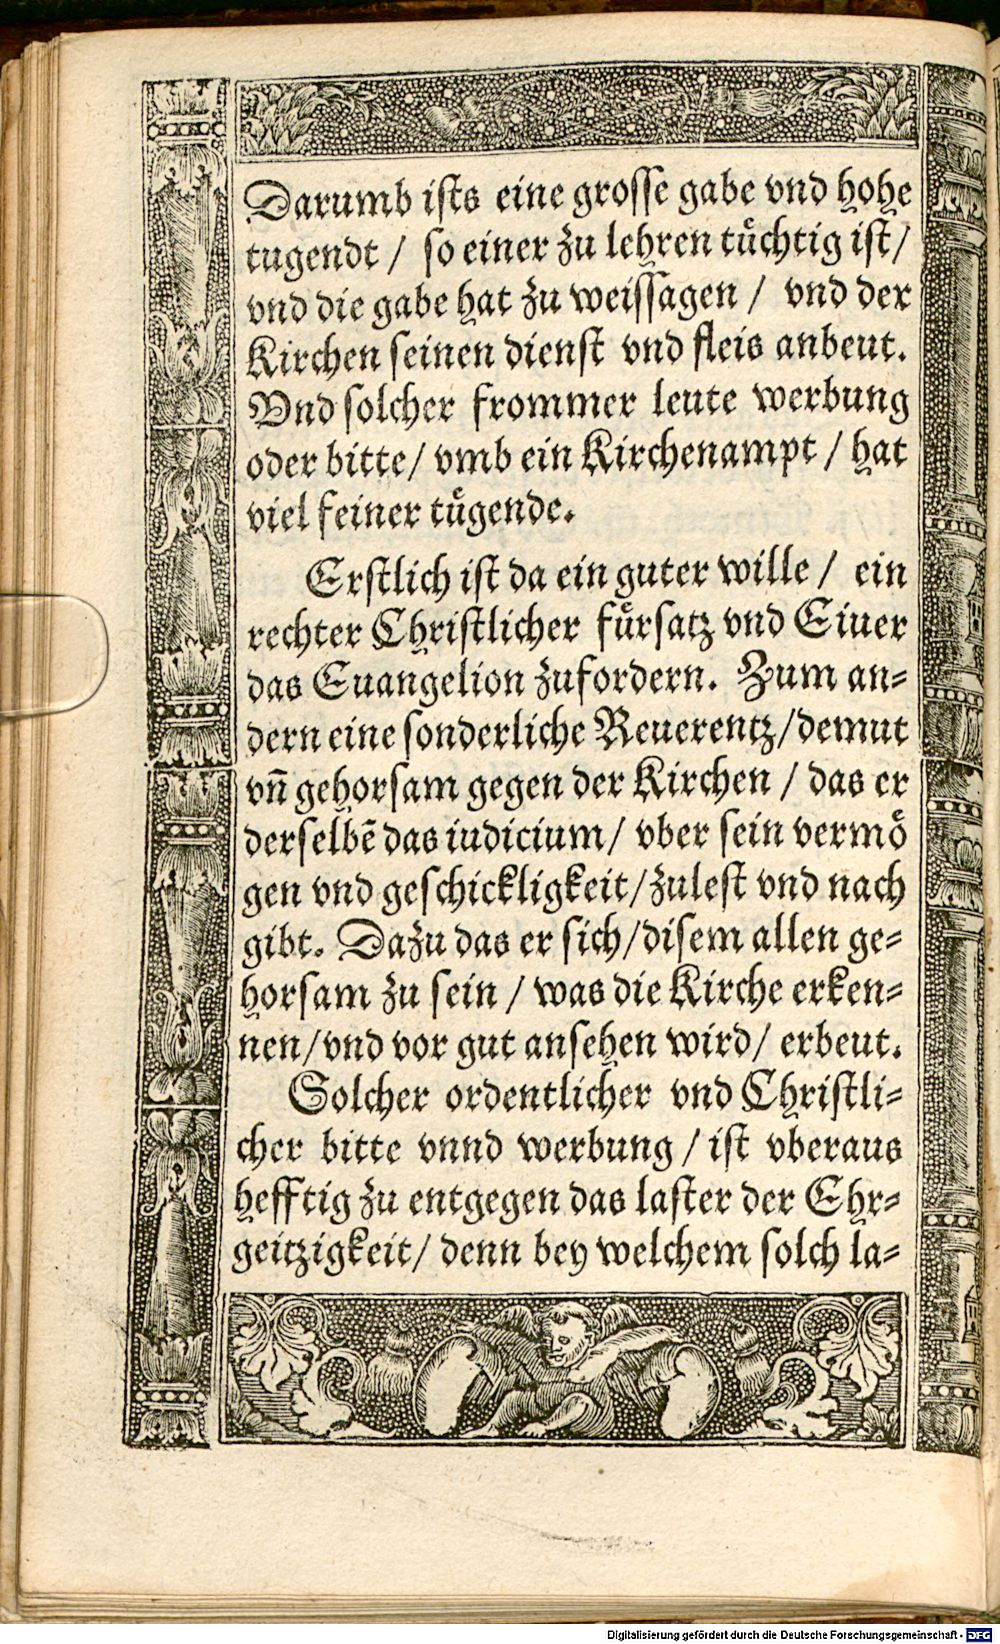 Darumb ists eine grosse gabe vnd hohe
tugendt / so einer zu lehren tüchtig ist/
vnd die gabe hat zu weissagen / vnd der
Kirchen seinen dienst vnd fleis anbeut.
Vnd solcher frommer leute werbung
oder bitte/ vmb ein Kirchenampt / hat
viel feiner tügende.
Erstlich ist da ein guter wille / ein
rechter Christlicher fürsatz vnd Eiuer
das Euangelion zufordern. Zum an-
dern eine sonderliche Reuerentz/demut
vn̄ gehorsam gegen der Kirchen / das er
derselbē das iudicium/ vber sein vermö
gen vnd geschickligkeit/zulest vnd nach
gibt. Dazu das er sich/disem allen ge-
horsam zu sein / was die Kirche erken-
nen/vnd vor gut ansehen wird/ erbeut.
Solcher ordentlicher vnd Christli-
cher bitte vnnd werbung / ist vberaus
hefftig zu entgegen das laster der Ehr-
geitzigkeit/ denn bey welchem solch la-
Digitalisierung gefördert durch die Deutsche Forschungsgemeinschaft - DFG